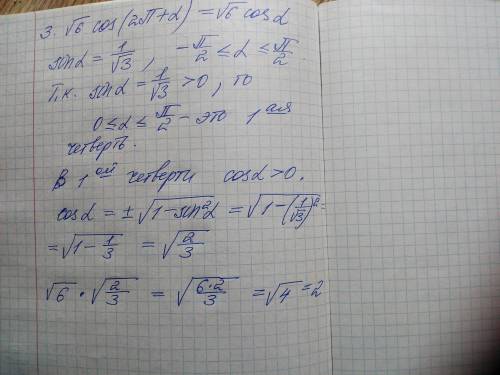 3. √6 cos(2π+α) = √6 cosα
sinα = 1/√3, -π/2 ≤ α ≤ π/2.
Т.к. sinα = 1/√3 > 0, то
0 ≤ α ≤ π/2 - это 1ая
четверть.
В 1ой четверти cosα > 0.
cosα = ±√(1-sin²α) = √(1-(1/√3)²) =
= √(1-1/3) = √(2/3)
√6 · √(2/3) = √(6·2/3) = √4 = 2